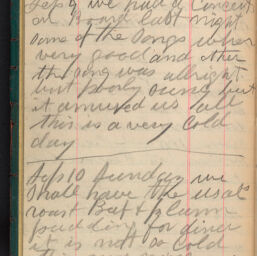 Sep 9 we had a Concert
on Board last night
some of the Songs wher
very good and other
the song was allright
but poorly sung but
it amused us all
this is a very cold
day
Sep 10 Sunday we
shall have the usal
roast Bef & plum
pudding for diner
it is not so cold